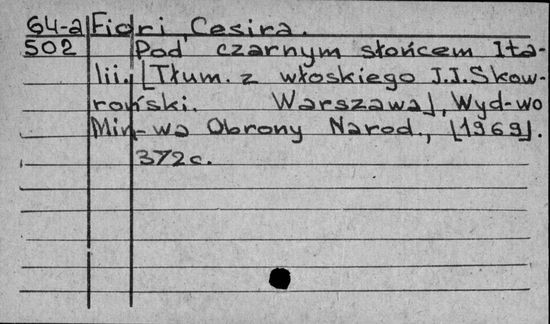 64-a Fiori, Cesira.
502 Pod czarnym słońcem Ita-
lii. [Tłum. z włoskiego J.I.Skow-
roński. Warszawa], Wyd-wo
Min-wa Obrony Narod., [1969].
372c.